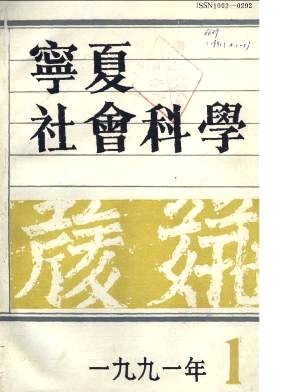 ISSN1002—0292
寧夏
社會科學
一九九一年 1